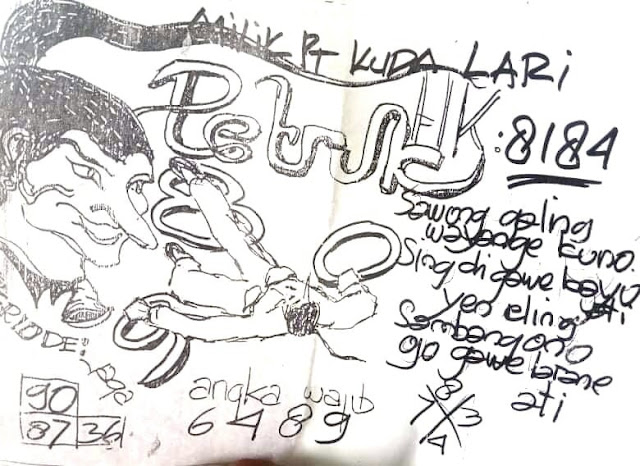 Milik Pt KUDA LARI
Petruk
: 8184
Sawong galing
wayange kuno.
Sing di gawe kayu
yen eling ati
Sambang ono
go gawe
ati
PERIODE:
90
87 36
angka wajib
6489
8
7 3
4